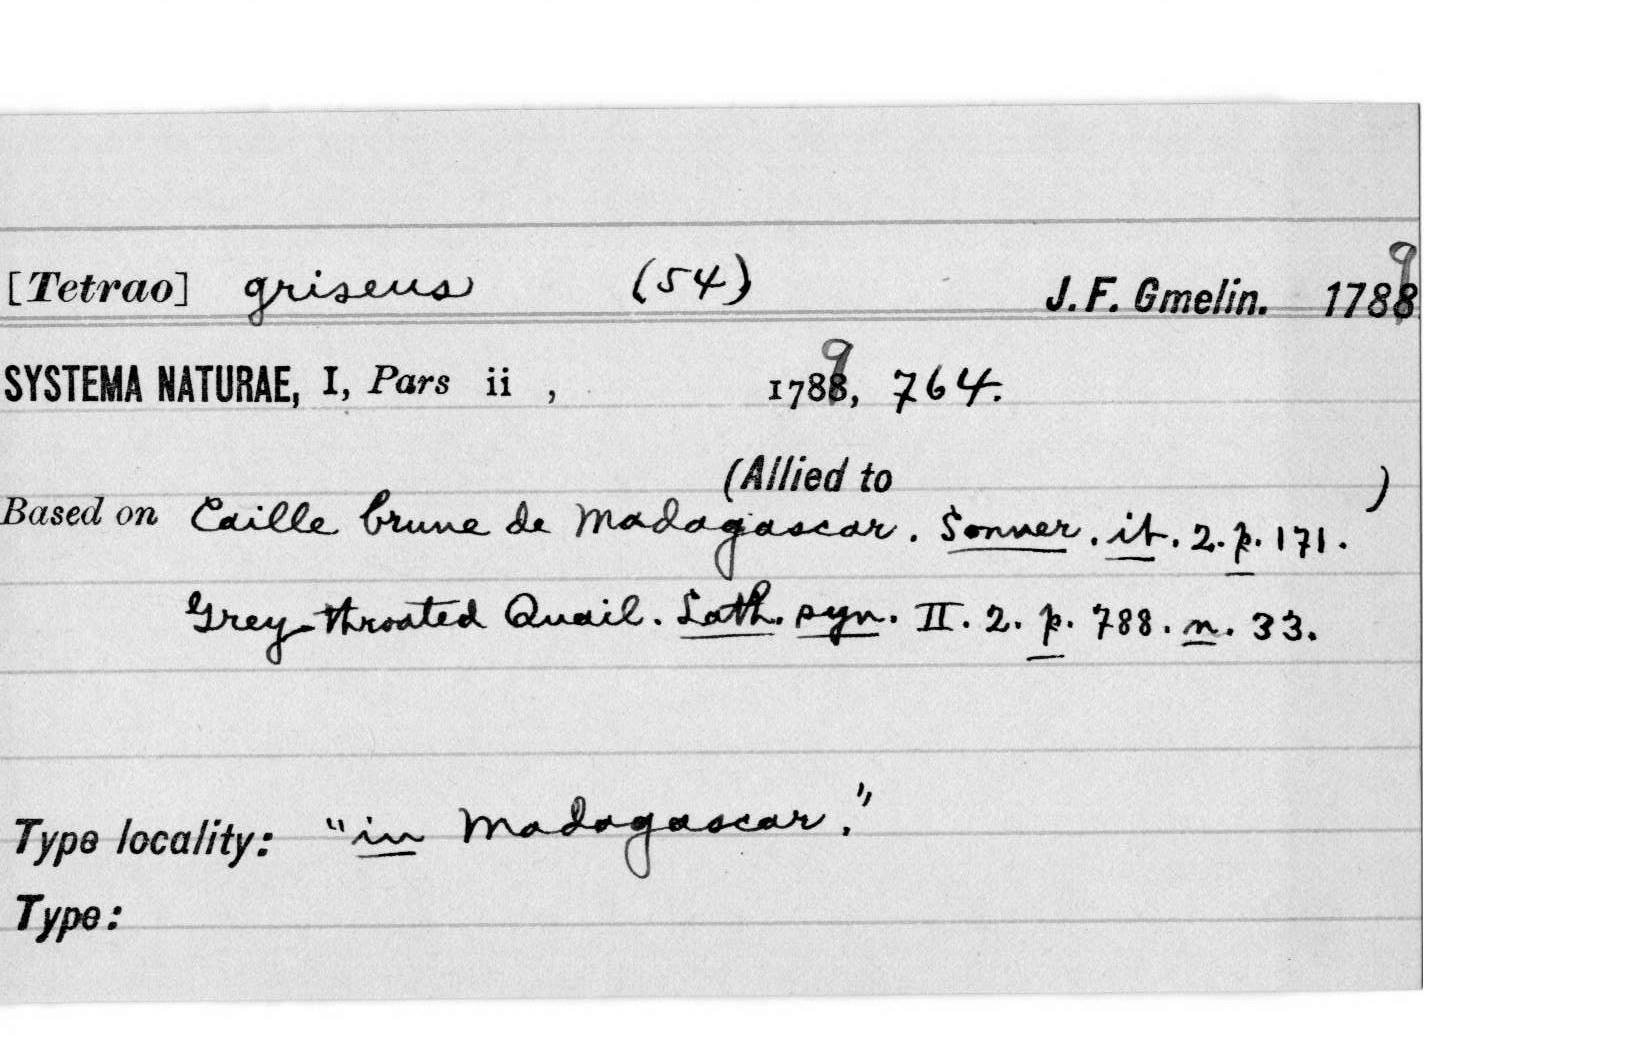 [Tetrao] griseus (54) J. F. Gmelin. 1789
SYSTEMA NATURAE, I, Pars ii , 1789, 764.
(Allied to )
Based on Caille brune de Madagascar. Sonner. it. 2. p. 171.
Grey-throated Quail. Lath. syn. II. 2. p. 788. n. 33.
Type locality: "in Madagascar."
Type: